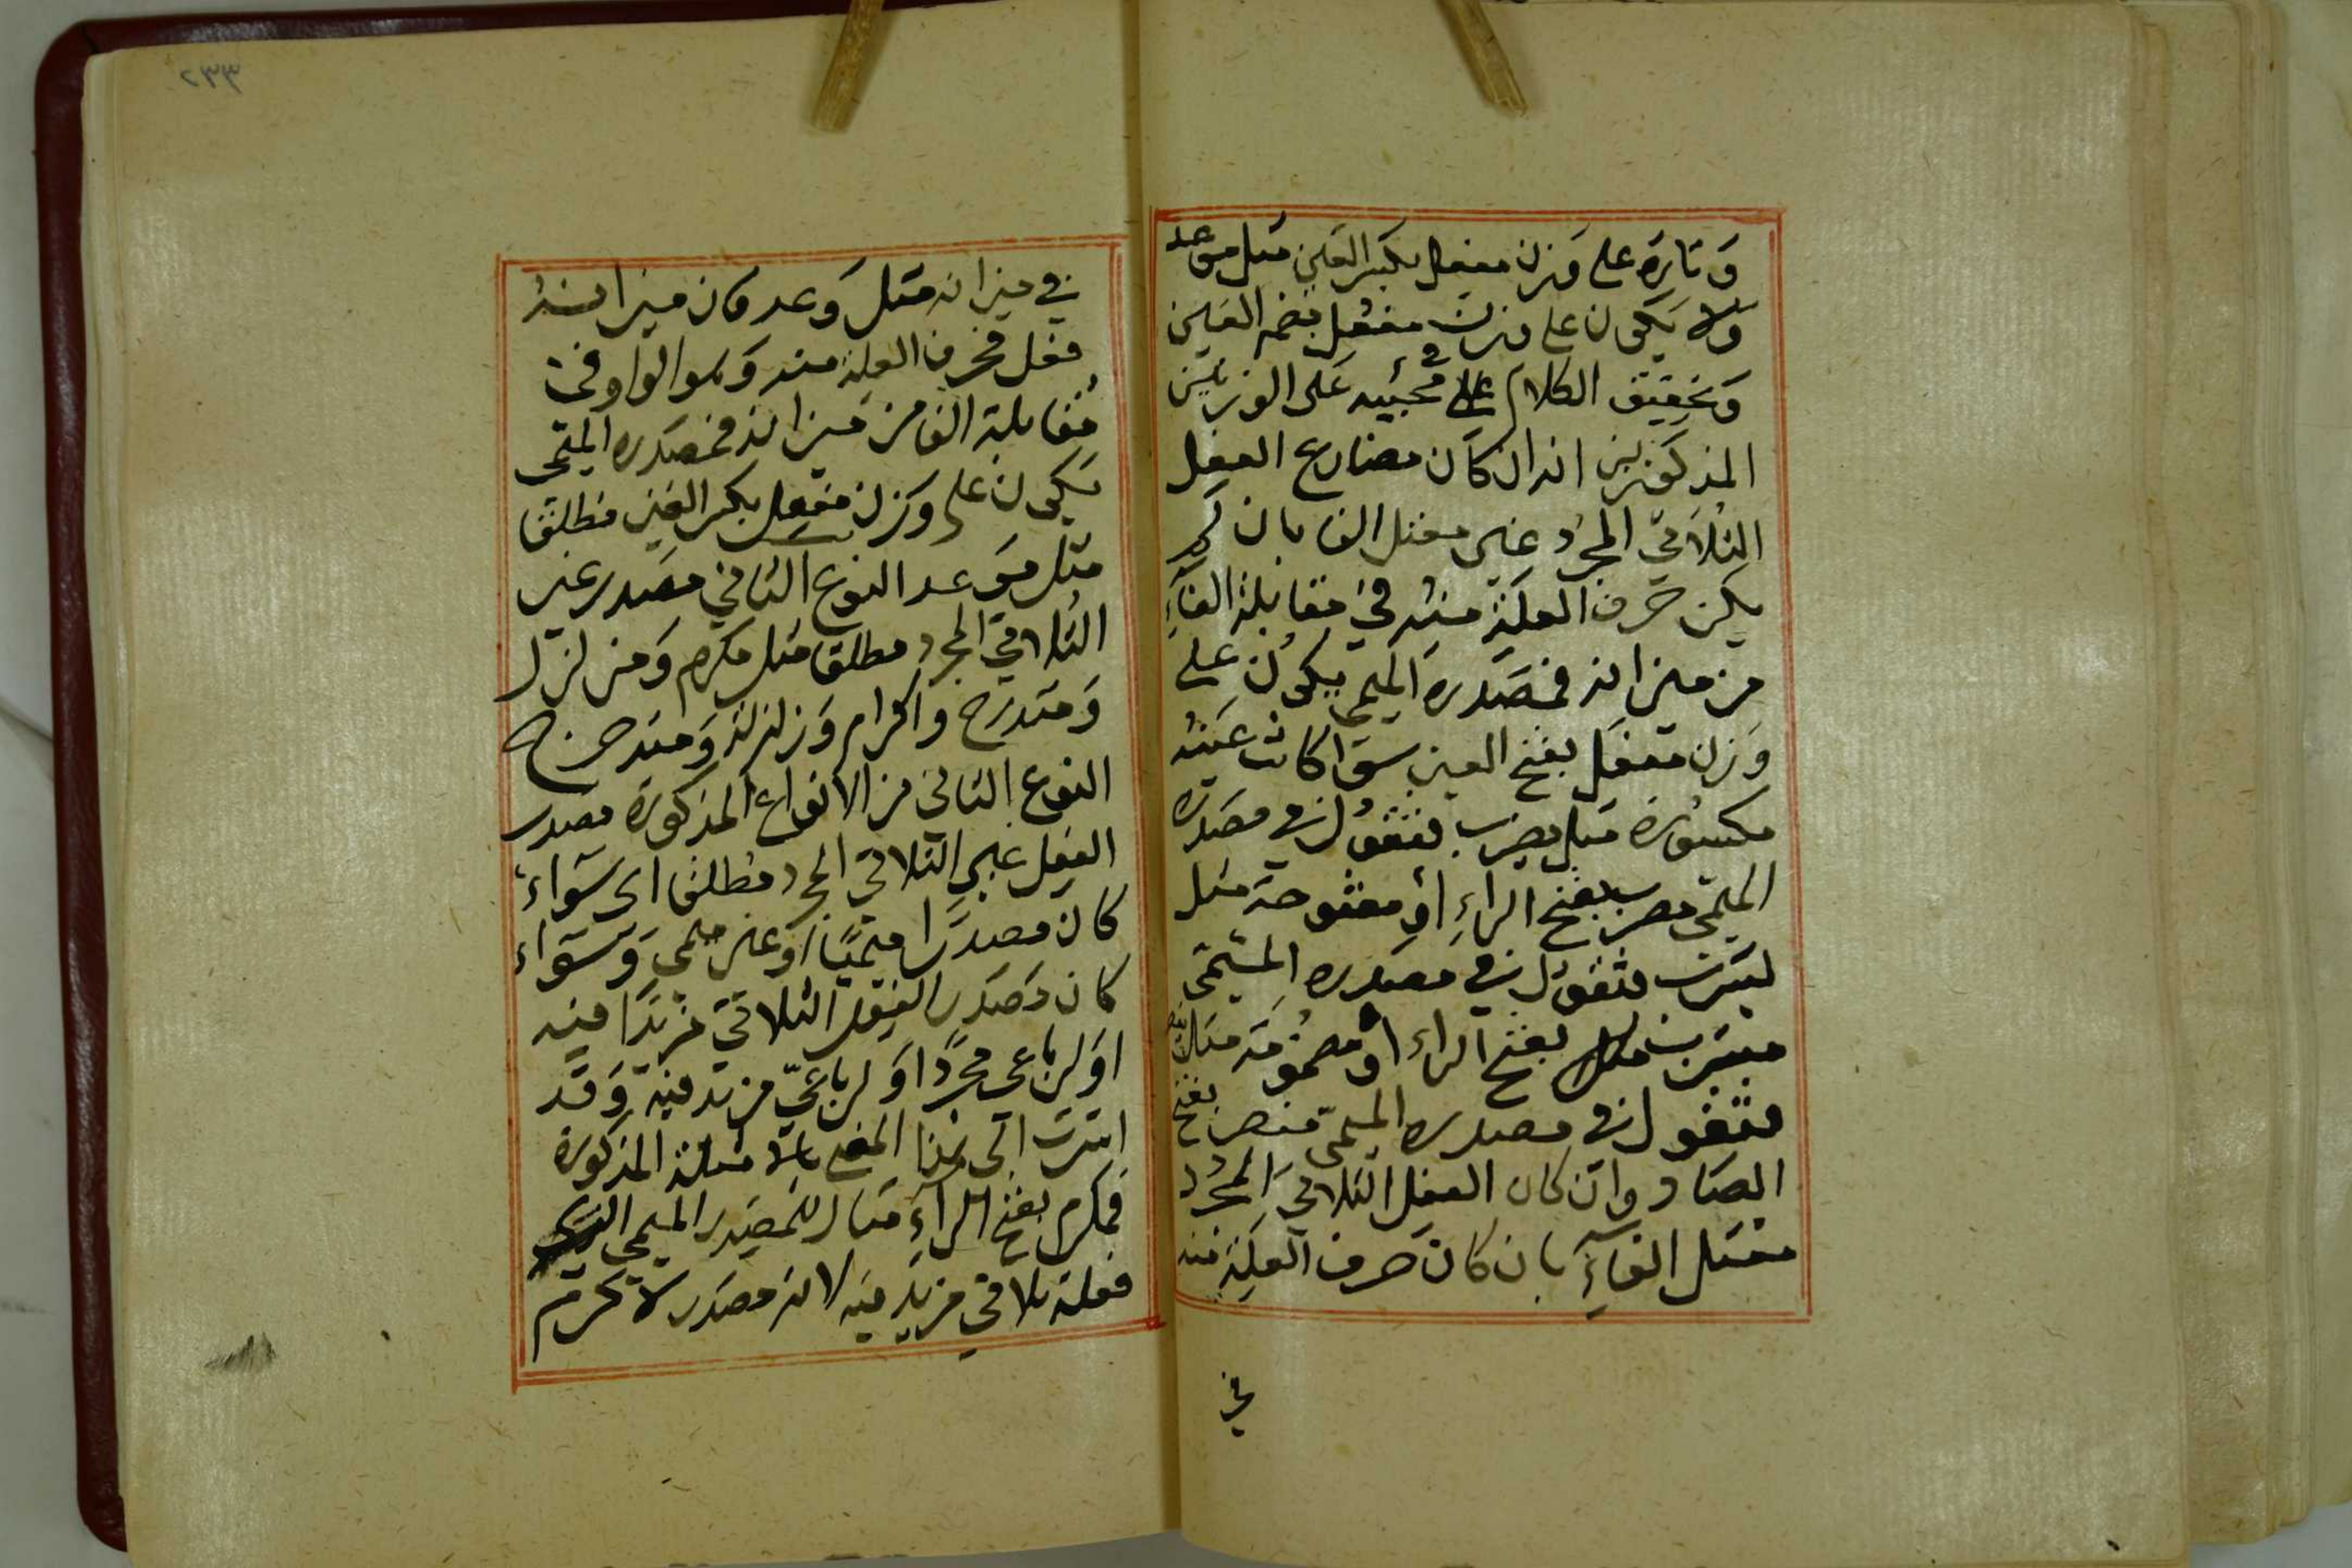 وَتارة على وزن مفعِل بكسر العَين مثل موعد
ولا يَكون على وزن مفعُل بضم العَين
وَتحقيق الكلام على في مجيئه عَلى الوزنَين
المذكورَين انه ان كان مضارع الفعل
الثلاثي المجرد غير معتل الفا بان لم
يكن حَرف العِلة منه في مقابلة الفاءِ
من ميزانه فمصَدره الميمي يكون على
وَزن مفعَل بفتح العين سوا كانت عَينه
مكسورة مثل يضرب فتقول في مصَدره
الميمي مضرب بفتح الراءِ او مفتوحة مثل
يشرَب فتقول في مصدره الميمي
مشرَب بفتح الراء او مضمومَة مثل ينصر
فتقول في مصدره الميمي منصر بفتح
الصَاد وان كان الفعل الثلاثي المجرد
معتل الفآءِ بان كان حَرف العِلة منه
في
٢٣٣
في ميزانه مثل وَعد فان ميزانه
فعل فحرف العلة منه وَهو الواو في
مقابلة الفا من ميزانه فمصَدره الميمي
يَكون على وَزن مفعِل بكسر العَين مطلقا
مثل موَعد النوع الثاني مصَدر غير
الثلاثي المجرد مطلقا مثل مكرم وَمزلزل
وَمتدحرج واكرام وَزلزلة وَمتدحرج
النوع الثاني من الانواع المذكورة مصدر
الفعل غير الثلاثي المجرد مطلقا اى سَواء
كان مصدرًا ميميًا او غير ميمي وَسَواء
كان مَصدَر الفعل الثلاثي مزيدًا فيه
اوَ لرباعي مجردًا اوَ لرباعيّ مزيد فيه وَقد
اشرت الى هذا المعنى بالامثلة المذكورة
فمكرم بفتح الرآءِ مثال للمصَدر الميمي الذي
فعله ثلاثي مزيد فيه لانه مصَدر لاكرم